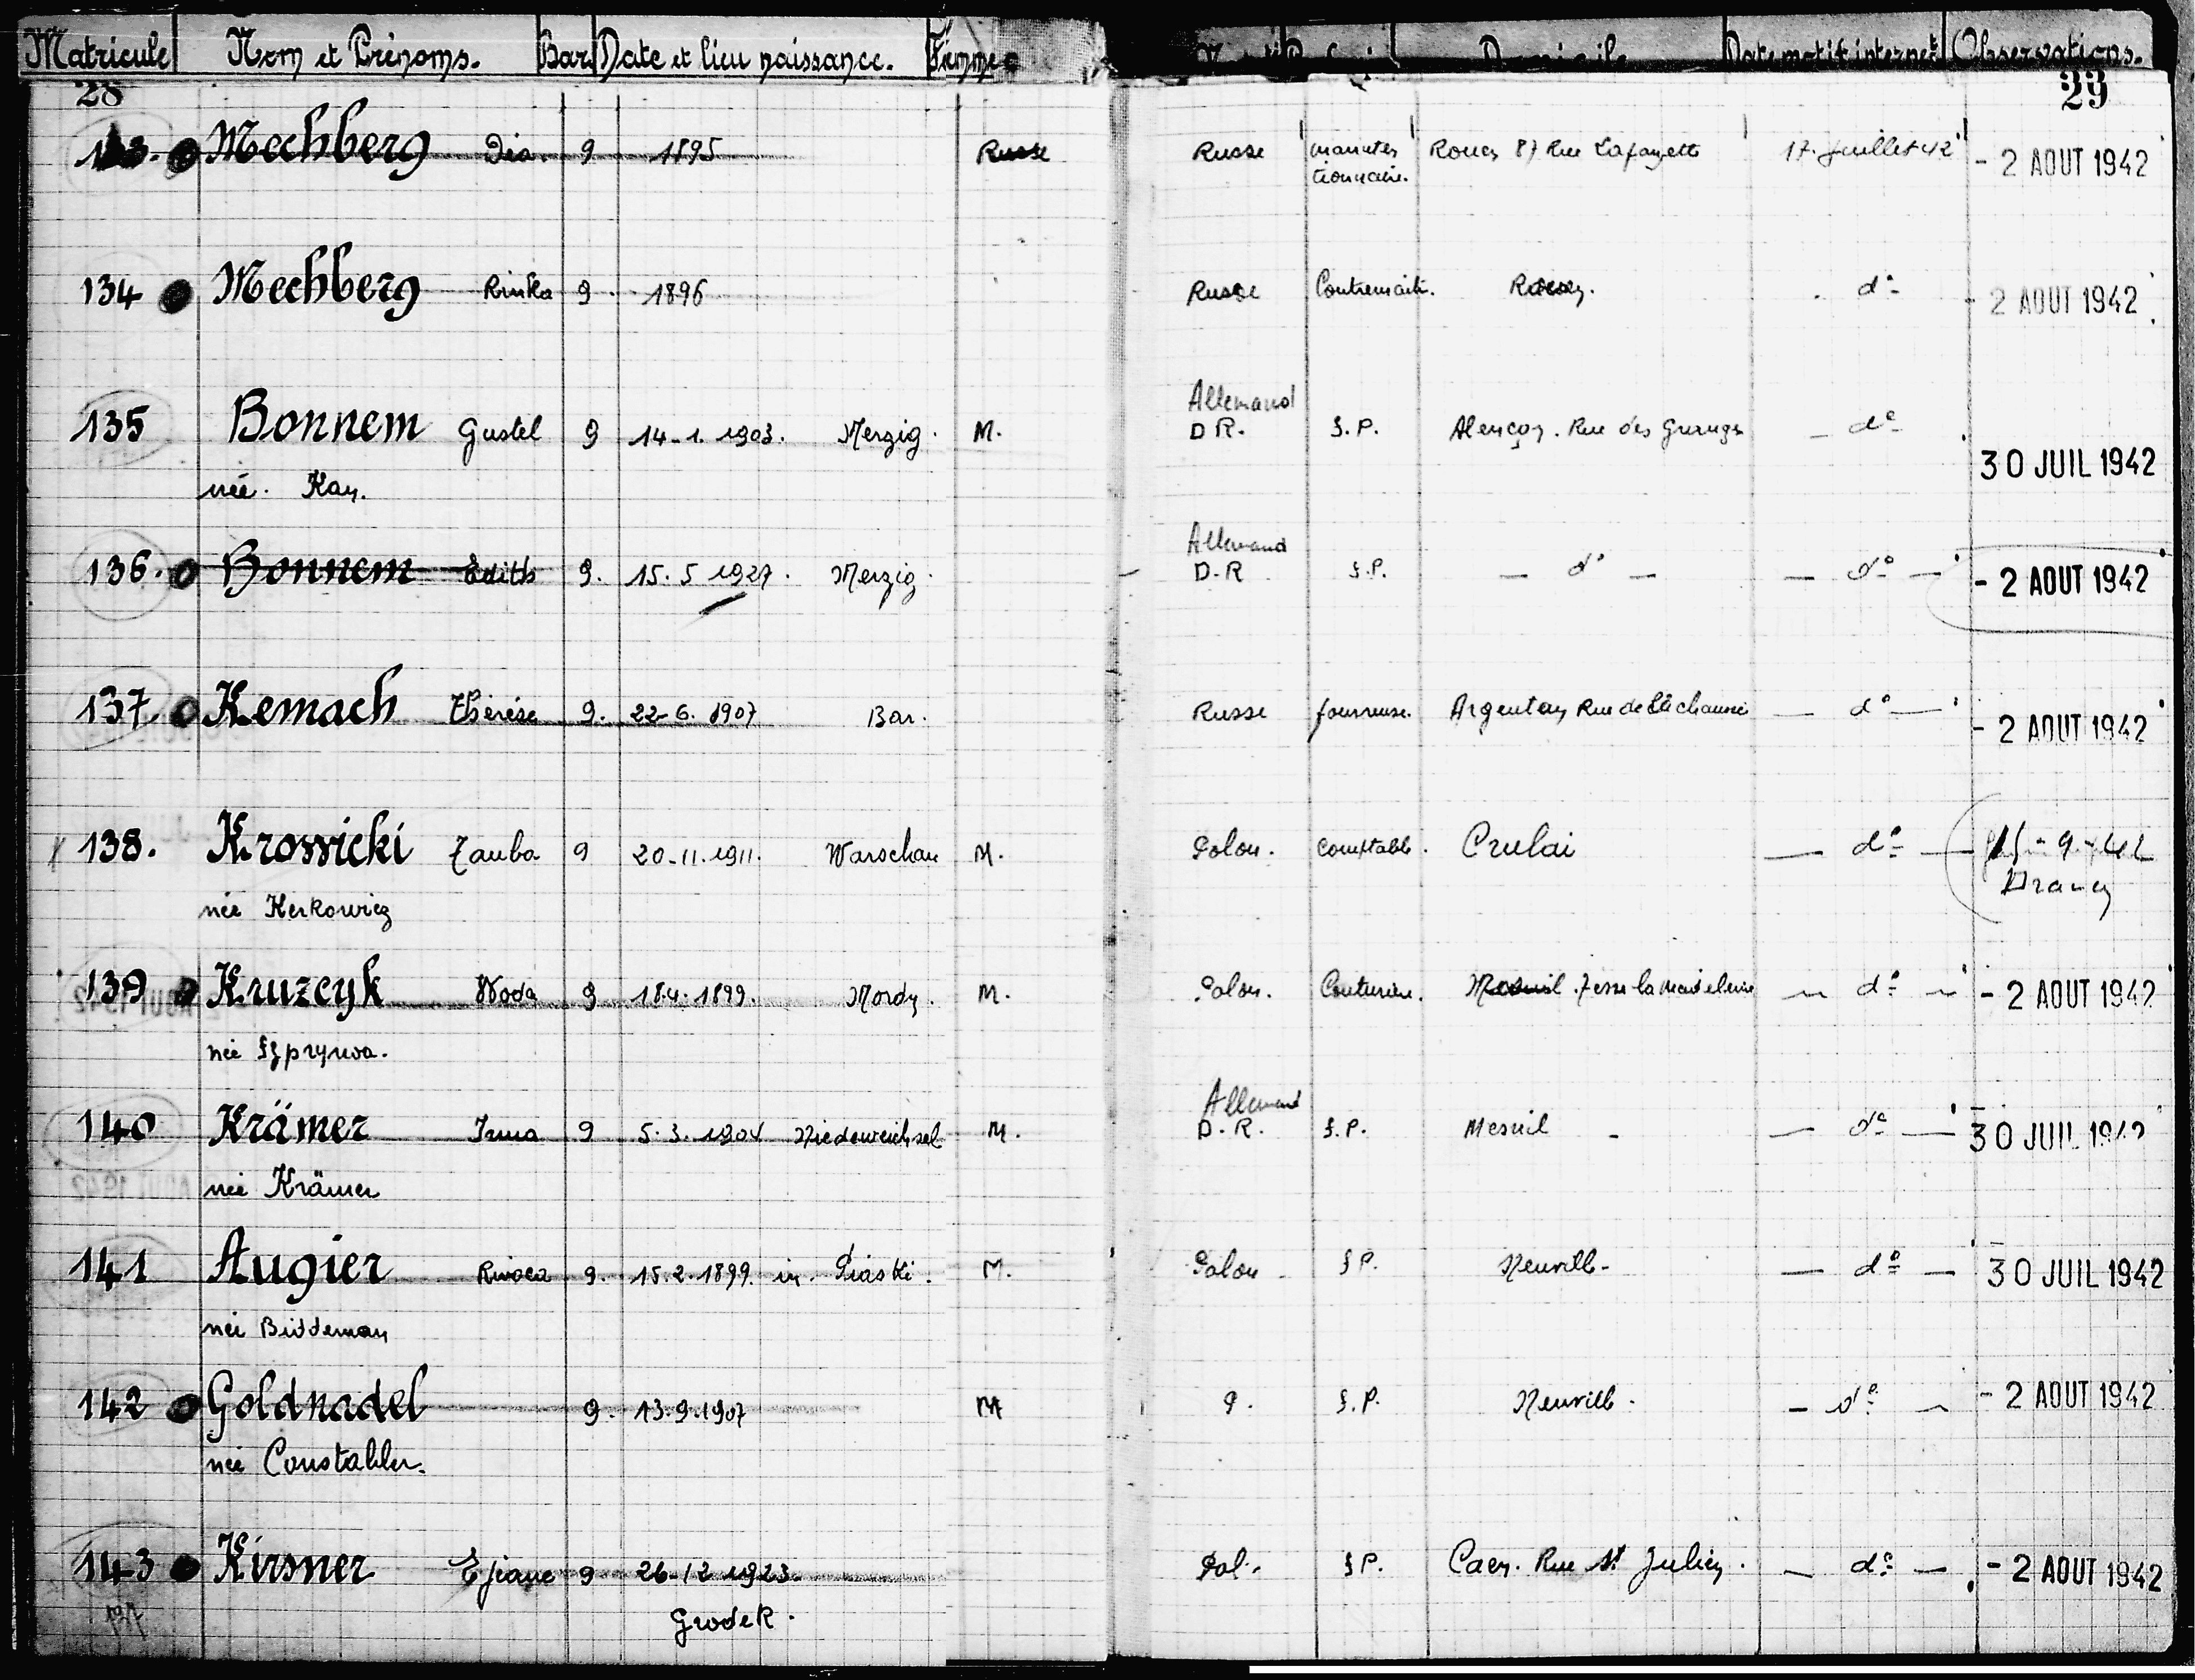 Matricule Nom et Prénoms. Bar Date et lieu naissance. Femme Domicile Date motif internet Observations.
28 29
133. Mechberg Dia. 9 1895 Russe Russe manuten Rouen 87 Rue Lafayette 17. Juillet 42 - 2 AOUT 1942
tionnaire.
134 Mechberg Rinka 9 1896 Russe Contremait. Rouen. d° - 2 AOUT 1942
Allemand
135 Bonnem Gustel 9 14-1. 1903. Merzig. M. D R. S.P. Alençon. Rue des Granges d°
30 JUIL 1942
née. Kan.
Allemand
136. Bonnem Edith 9. 15. 5 1927. Merzig. D.R S.P. — d° — — d° — - 2 AOUT 1942
137. Kemach Thérèse 9. 22-6. 1907 Bar. Russe fourreuse. Argentan Rue de la chaussée — d° — - 2 AOUT 1942
138. Krossicki Tauba 9 20-11.1911. Warschau M. Polon. comptable. Crulai — d° — 15-9-42
Drancy
née Herkowicz
139 Kruzcyk Woda 9 18.4.1899. Mordy. M. Polon. Couturière. Mesnil. d° - 2 AOUT 1942
née Szprynwa.
Allemand
140 Krämer Irma 9 5.3.1904 Niederweichsel M. D.R. S.P. Mesnil - — d° — 30 JUIL 1942
née Krämer
141 Augier Rivoca 9. 15.2.1899. in. Piaski. M. Polon S.P. Neuvill- — d° — 30 JUIL 1942
née Biddeman
142 Goldnadel 9. 13.9.1907 M P. S.P. Neuvill. — d° - 2 AOUT 1942
née Constabler.
143 Kirsner Ejeane 9 26-12 1923. Pol. S.P. Caen. Rue St Julien. — d° — - 2 AOUT 1942
Grodek.